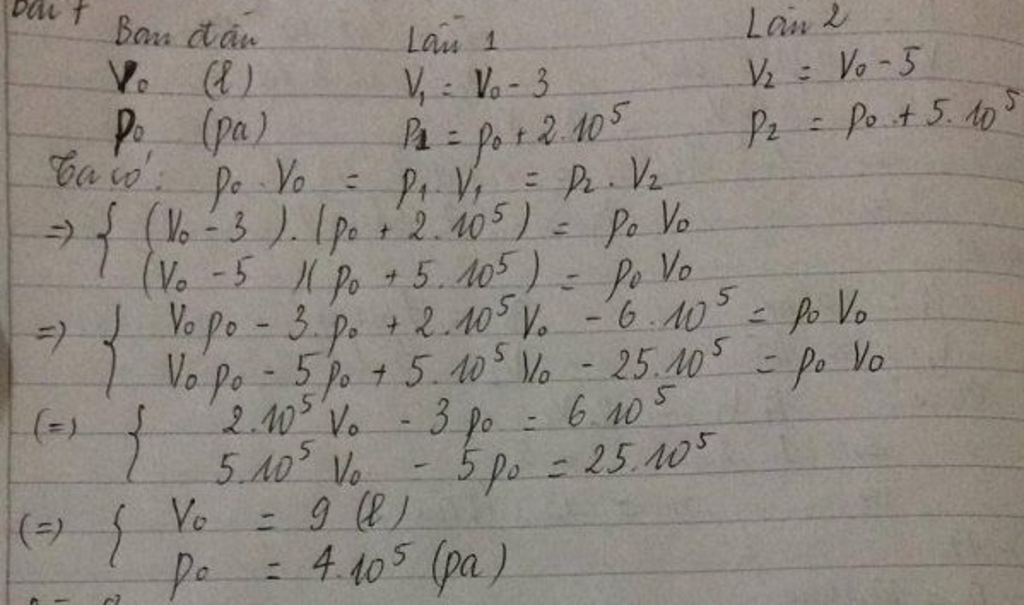 Ban đầu Lần 1 Lần 2
V₀ (l) V₁ = V₀ - 3 V₂ = V₀ - 5
p₀ (pa) p₁ = p₀ + 2.10⁵ p₂ = p₀ + 5.10⁵
Ta có: p₀.V₀ = p₁.V₁ = p₂.V₂
=> { (V₀ - 3).(p₀ + 2.10⁵) = p₀V₀
(V₀ - 5)(p₀ + 5.10⁵) = p₀V₀
=> { V₀p₀ - 3.p₀ + 2.10⁵V₀ - 6.10⁵ = p₀V₀
V₀p₀ - 5p₀ + 5.10⁵V₀ - 25.10⁵ = p₀V₀
(=) { 2.10⁵V₀ - 3p₀ = 6.10⁵
5.10⁵V₀ - 5p₀ = 25.10⁵
(=) { V₀ = 9 (l)
p₀ = 4.10⁵ (pa)